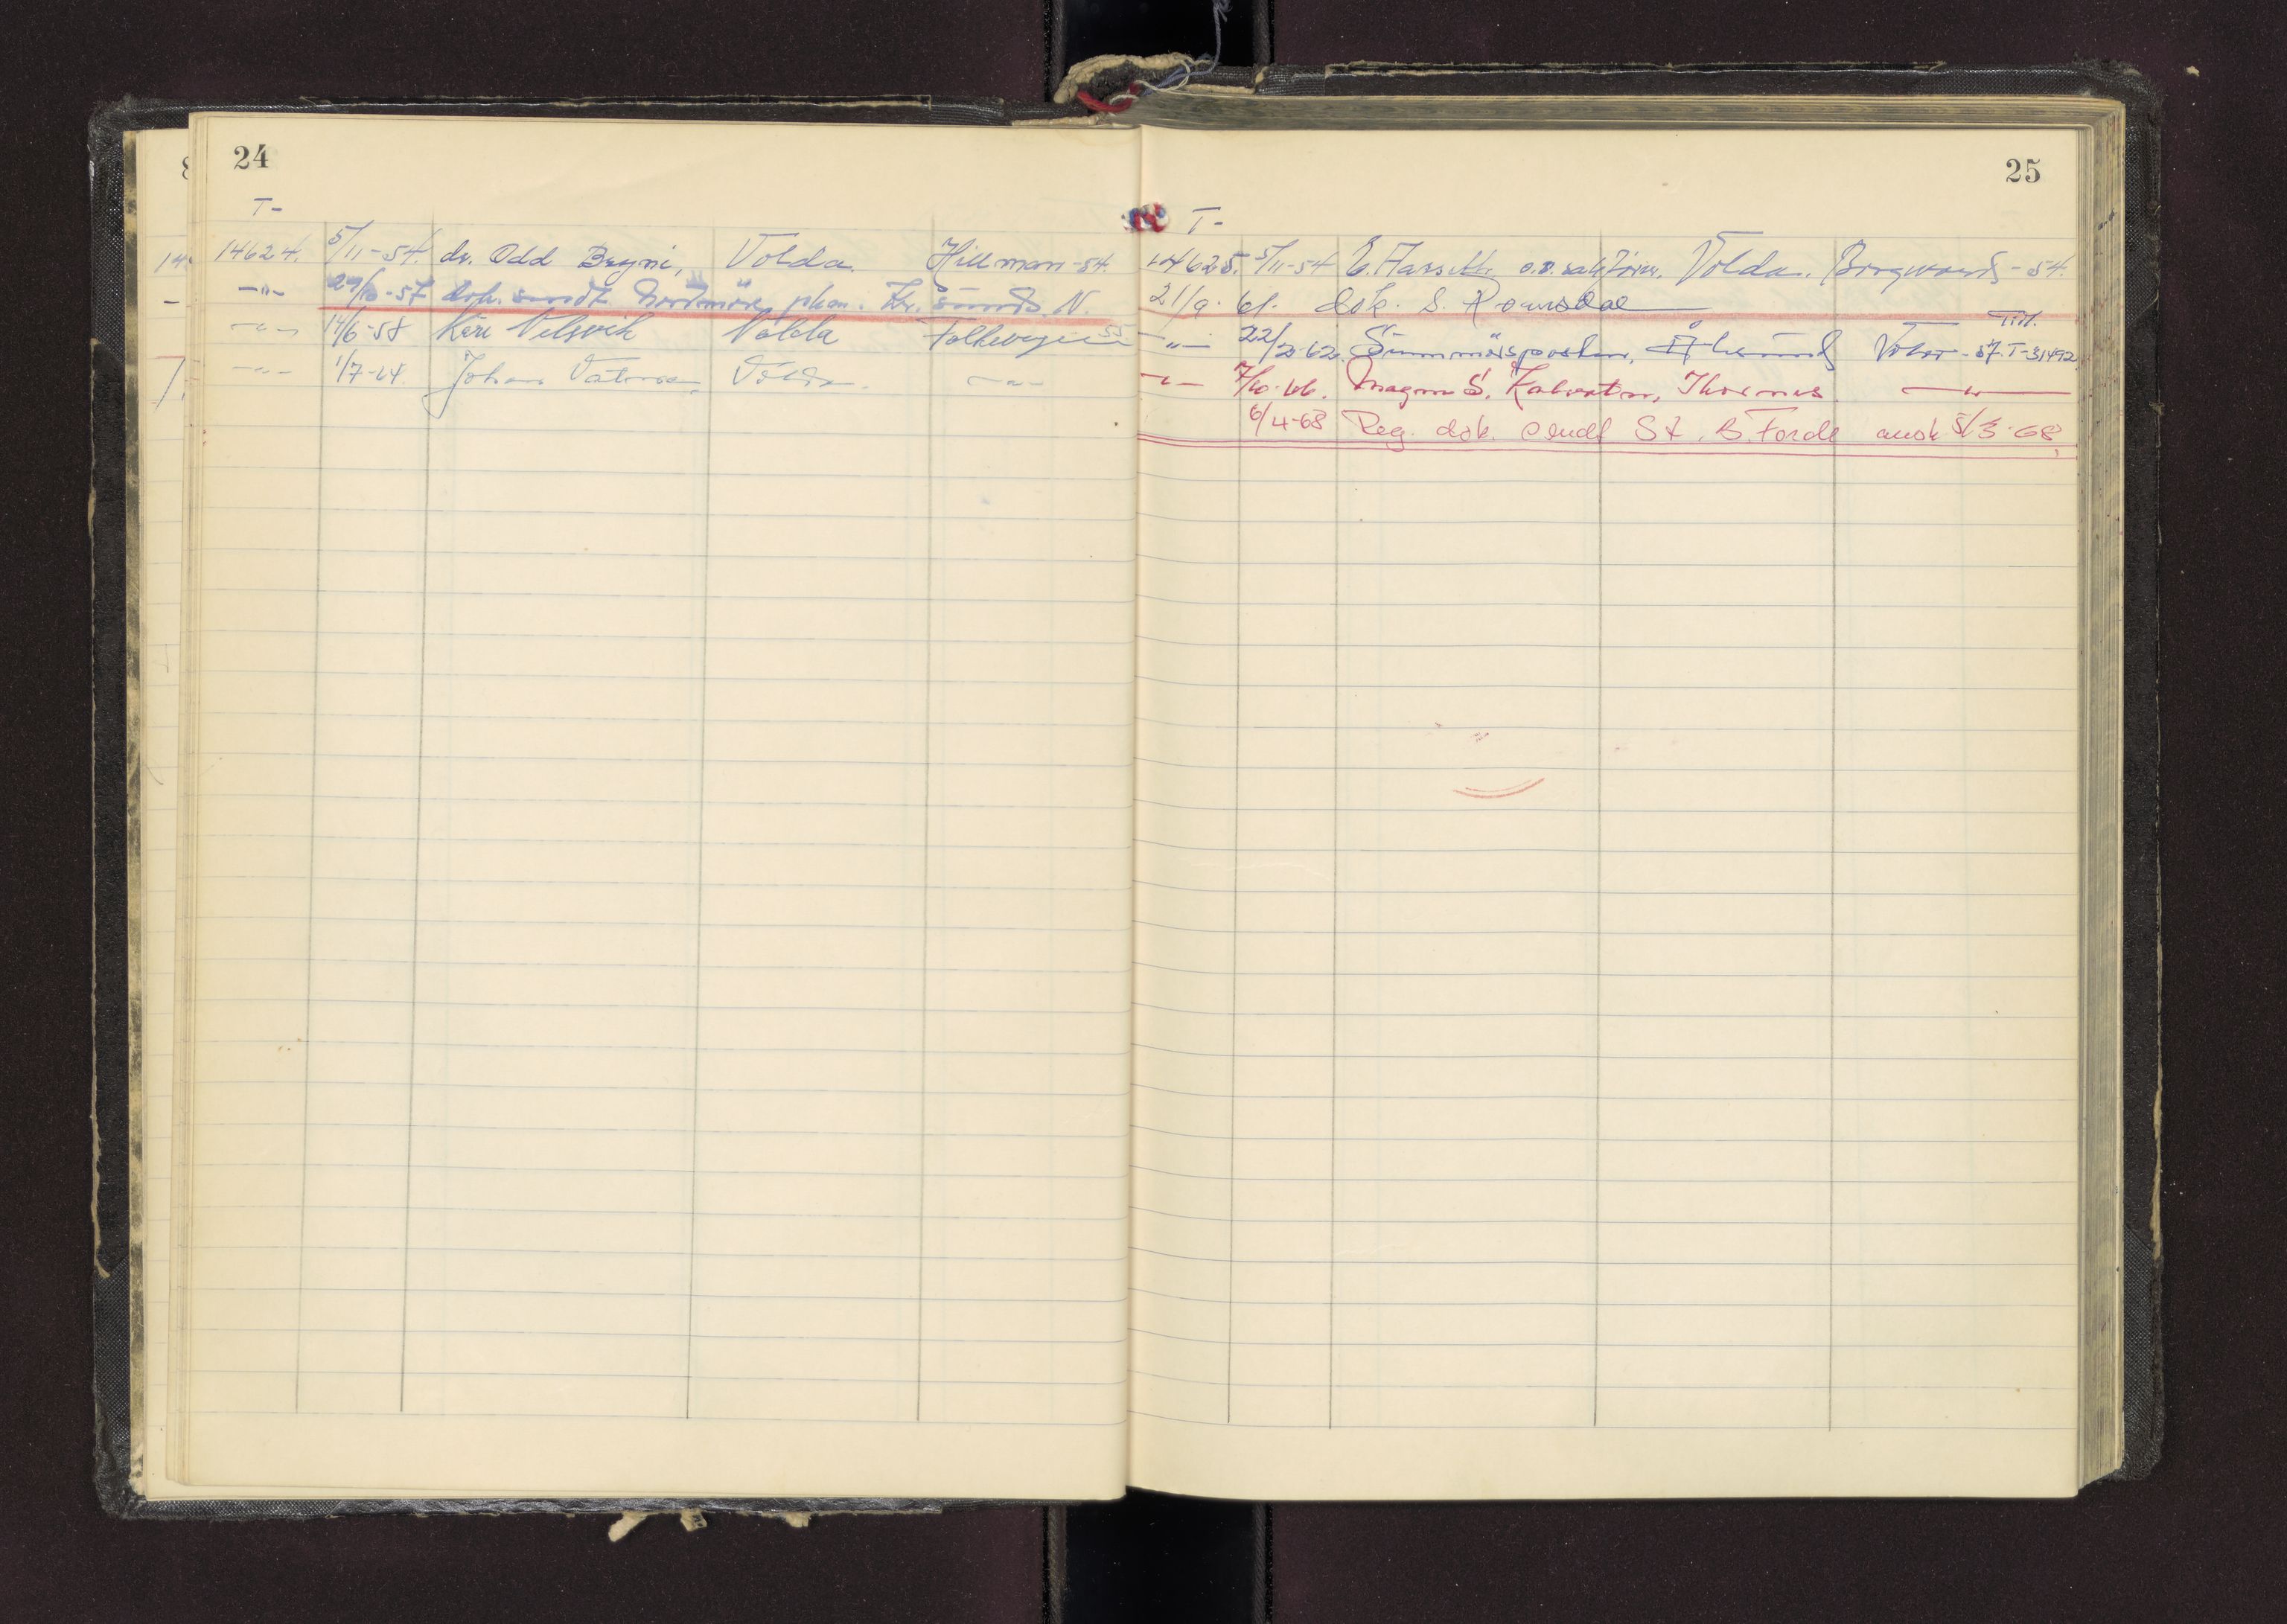 24
T-
14624. 5/11-54. dr. Odd Bryni, Volda. Hillman-54.
-"- 29/10-57 dok. sendt Nordmöre phm. Kr.sund N.
-"- 14/6-58 Kåre Velsvik Volda Folkevogn 55
-"- 1/7-64. Johan Vatne Volda. -"-
25
T-
14625. 5/11-54 E. Aarseth, Volda. Borgward-54.
21/9-61. dok. s. Romsdal
Tidl.
-"- 22/2-62. Sunnmørsposten, Ålesund Volvo-57. T-31492
-"- 7/10-66. Magne S. Kalvatn, -"-
6/4-68 Reg. dok. sendt St. B. Førde ansk 5/3-68.